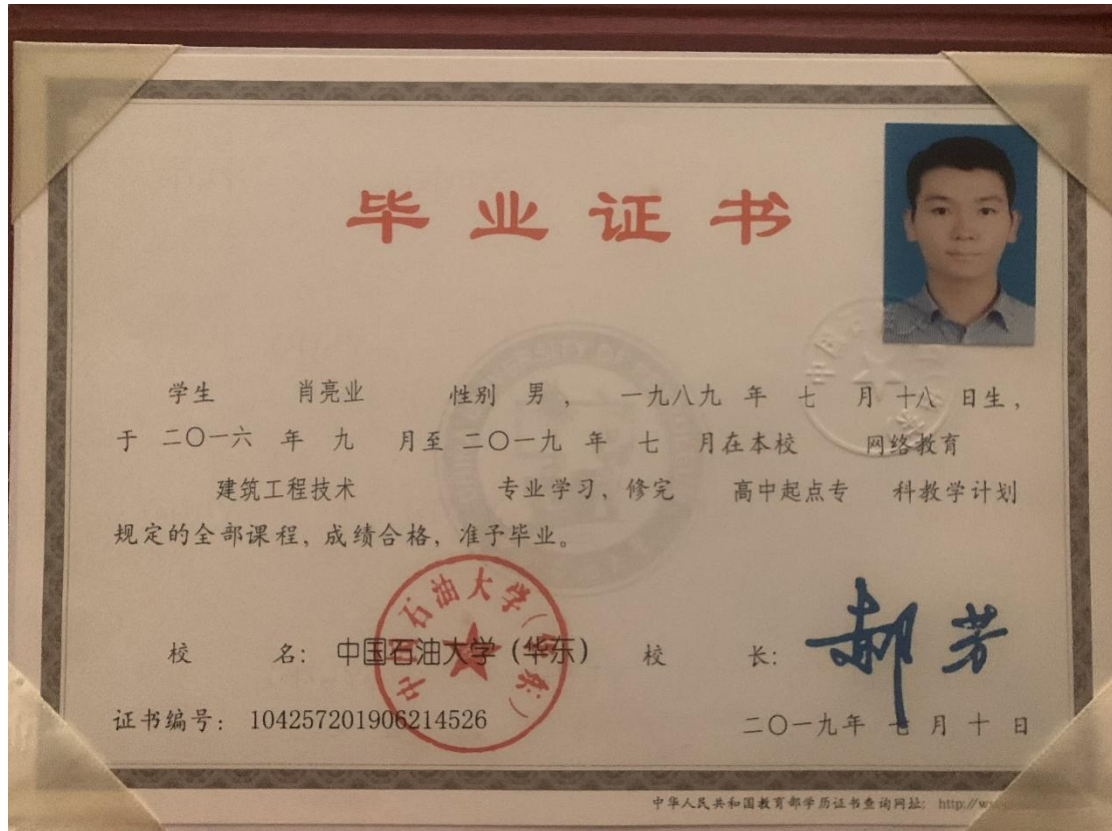 毕业证书
学生 肖亮业 性别 男， 一九八九 年 七 月 十八 日生，
于 二〇一六 年 九 月至 二〇一九 年 七 月在本校 网络教育
建筑工程技术 专业学习，修完 高中起点专 科教学计划
规定的全部课程，成绩合格，准予毕业。
中国石油大学（华东）
校 名：中国石油大学（华东） 校 长：郝芳
证书编号：104257201906214526 二〇一九年 七 月 十 日
中华人民共和国教育部学历证书查询网址：http://w